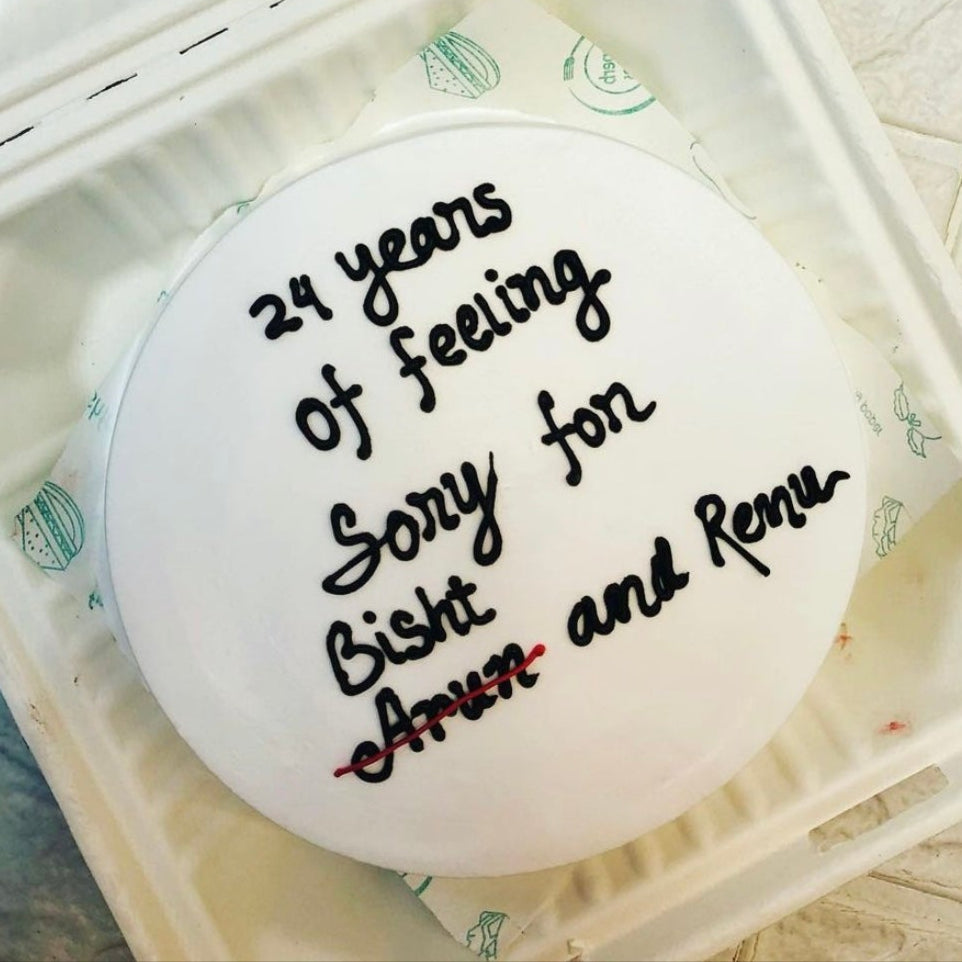 24 years
of feeling
Sorry for
Bisht
Arun and Renu